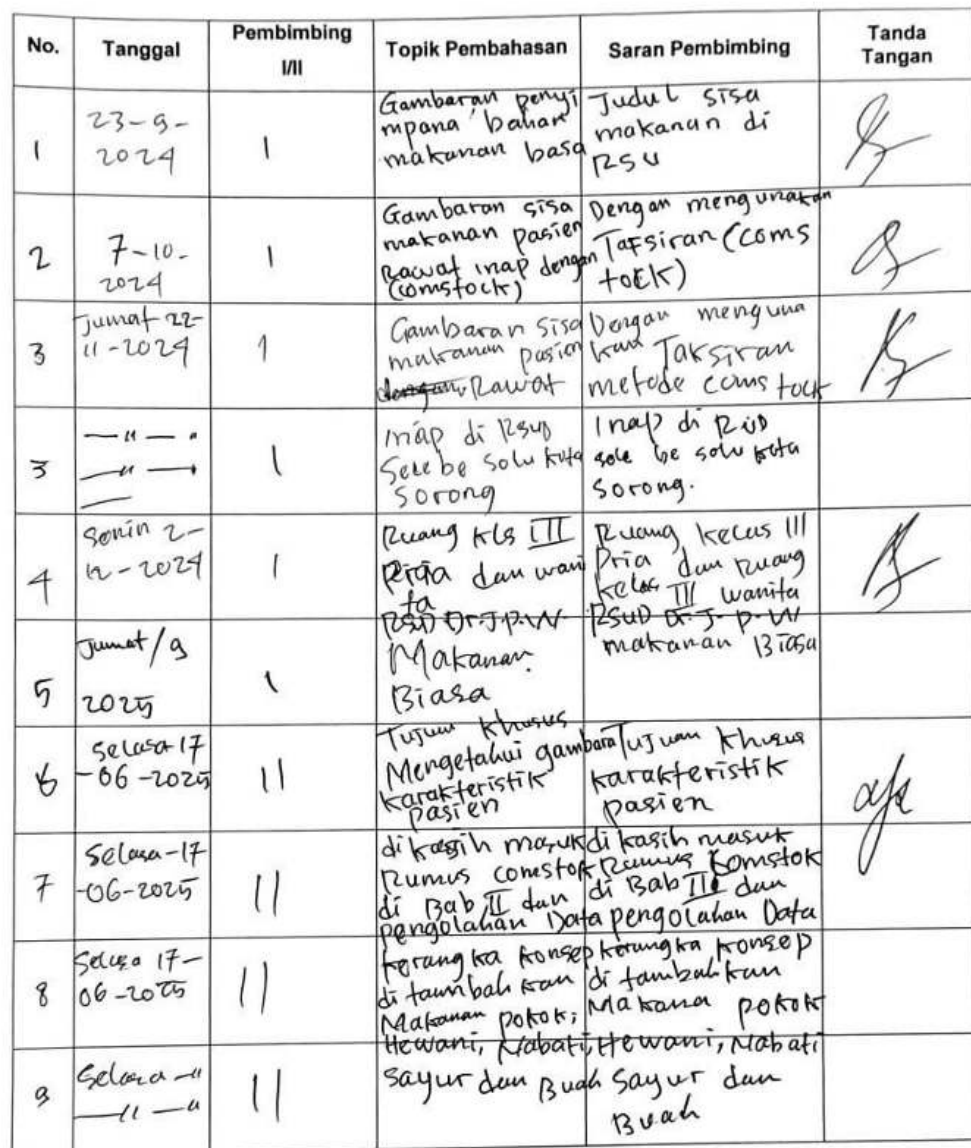 No. Tanggal Pembimbing I/II Topik Pembahasan Saran Pembimbing Tanda Tangan
1 23-9-2024 1
Gambaran penyi
mpana bahan
makanan basa
Judul sisa
makanan di
RSU
2 7-10-2024 1
Gambaran sisa
makanan pasien
Rawat inap dengan
(comstock)
Dengan mengunakan
Tafsiran (coms
tock)
3 Jumat 22-11-2024 1
Gambaran sisa
makanan pasien
dengan Rawat
Dengan menguna
kan Taksiran
metode comstock
3 — " — "
— " —
1
inap di Rsud
Sele be solu kota
Sorong
Inap di
sele be solu kota
Sorong.
4 Senin 2-12-2024 1
Ruang kls III
Pria dan wani
ta
RSUD Dr.J.P.W.
Ruang kelas III
Pria dan Ruang
kelas III wanita
RSUD Dr.J.P.W
5 Jumat/9 2025 1
Makanan
Biasa
makanan Biasa
6 Selasa 17-06-2025 11
Tujuan Khusus
Mengetahui gambara
karakteristik
pasien
Tujuan Khusus
karakteristik
pasien
7 Selasa-17-06-2025 11
di kasih masuk
Rumus comstok
di Bab II dan
pengolahan Data
di kasih masuk
Rumus Komstok
di Bab III dan
pengolahan Data
8 Selasa 17-06-2025 11
kerangka konsep
di tambah kan
Makanan pokok,
kerangka konsep
di tambah kan
Makana pokok
9 Selasa — "
— " — "
11
Hewani, Nabati,
Sayur dan Buah
Hewani, Nabati
Sayur dan
Buah